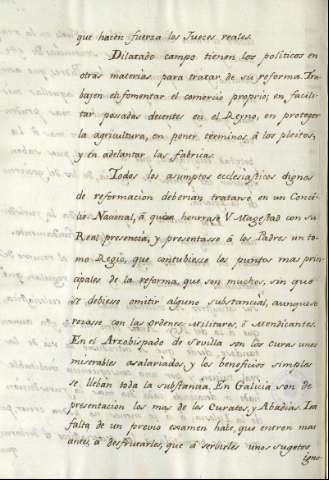 que hacen fuerza los Jueces reales.
Dilatado campo tienen los politicos en
otras materias para tratar de su reforma. Tra-
bajen en fomentar el comercio proprio; en facili-
tar posadas decentes en el Reyno, en proteger
la agricultura, en poner terminos à los pleitos,
y en adelantar las fabricas.
Todos los asumptos ecclesiasticos dignos
de reformacion deberian tratarse en un Conci-
lio Nacional, à quien honrrase V. Magestad con su
Real presencia, y presentasse à los Padres un to-
mo Regio, que contubiesse los puntos mas prin-
cipales de la reforma, que son muchos, sin que
se debiesse omitir alguno substancial, aunque se
rozasse con las ordenes Militares, ò Mendicantes.
En el Arzobispado de Sevilla son los curas unos
miserables asalariados y los beneficios simples
se lleban toda la substancia. En Galicia son de
presentacion los mas de los Curatos, y Abadias. La
falta de un previo examen hace, que entren mas
antes, à desfrutarles, que à servirles unos sugetos
igno-